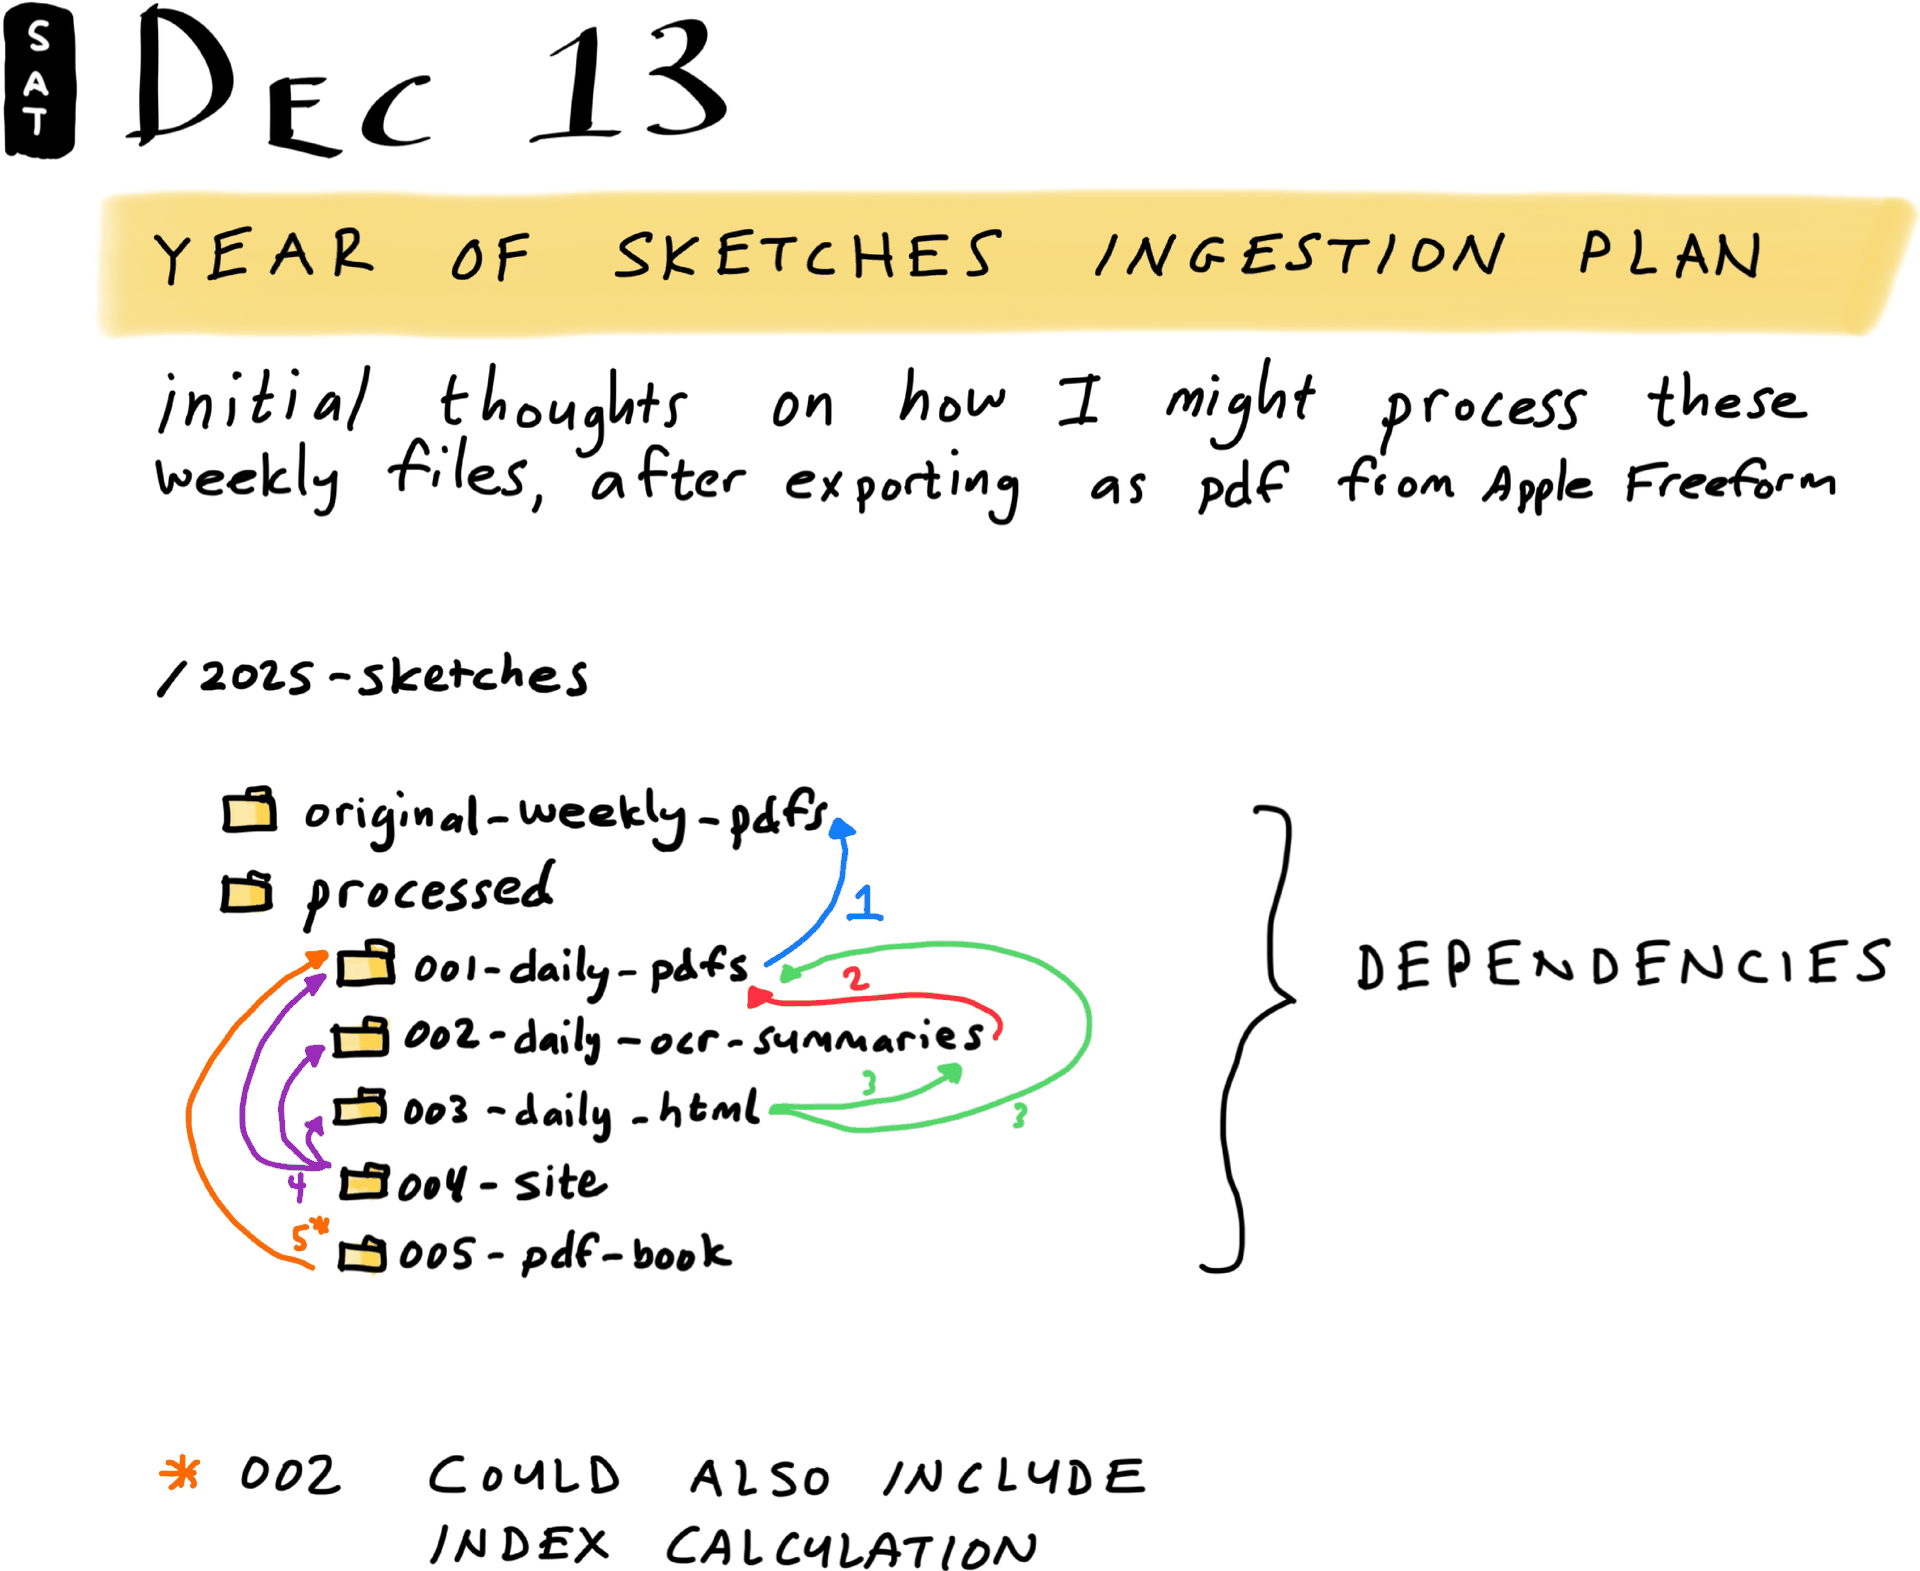 SAT
DEC 13
YEAR OF SKETCHES INGESTION PLAN
initial thoughts on how I might process these
weekly files, after exporting as pdf from Apple Freeform
/2025-sketches
original-weekly-pdfs
1
processed
001-daily-pdfs
2
DEPENDENCIES
002-daily-ocr-summaries
3
003-daily-html
3
4
004-site
5*
005-pdf-book
* 002 COULD ALSO INCLUDE
INDEX CALCULATION